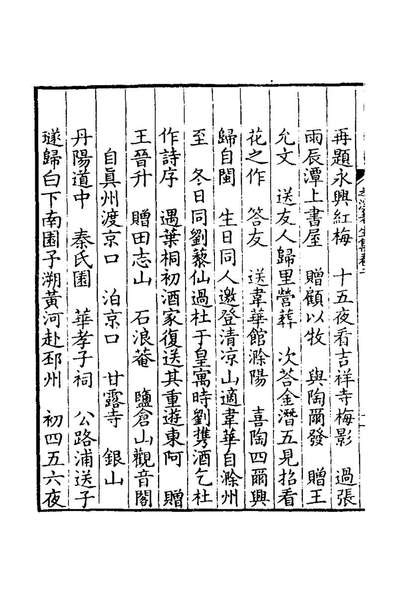 再題永興紅梅 十五夜看吉祥寺梅影 過張
雨辰潭上書屋 贈顧以牧 與陶爾發 贈王
允文 送友人歸里營葬 次荅金潛五見招看
花之作 答友 送韋華館滁陽 喜陶四爾興
歸自閩 生日同人邀登清凉山適韋華自滁州
至 冬日同劉藜仙過杜于皇寓時劉攜酒乞杜
作詩序 遇葉桐初酒家復送其重遊東阿 贈
王晉升 贈田志山 石浪菴 鹽倉山觀音閣
自眞州渡京口 泊京口 甘露寺 銀山
丹陽道中 秦氏園 華孝子祠 公路浦送子
璲歸白下南園子溯黃河赴邳州 初四五六夜